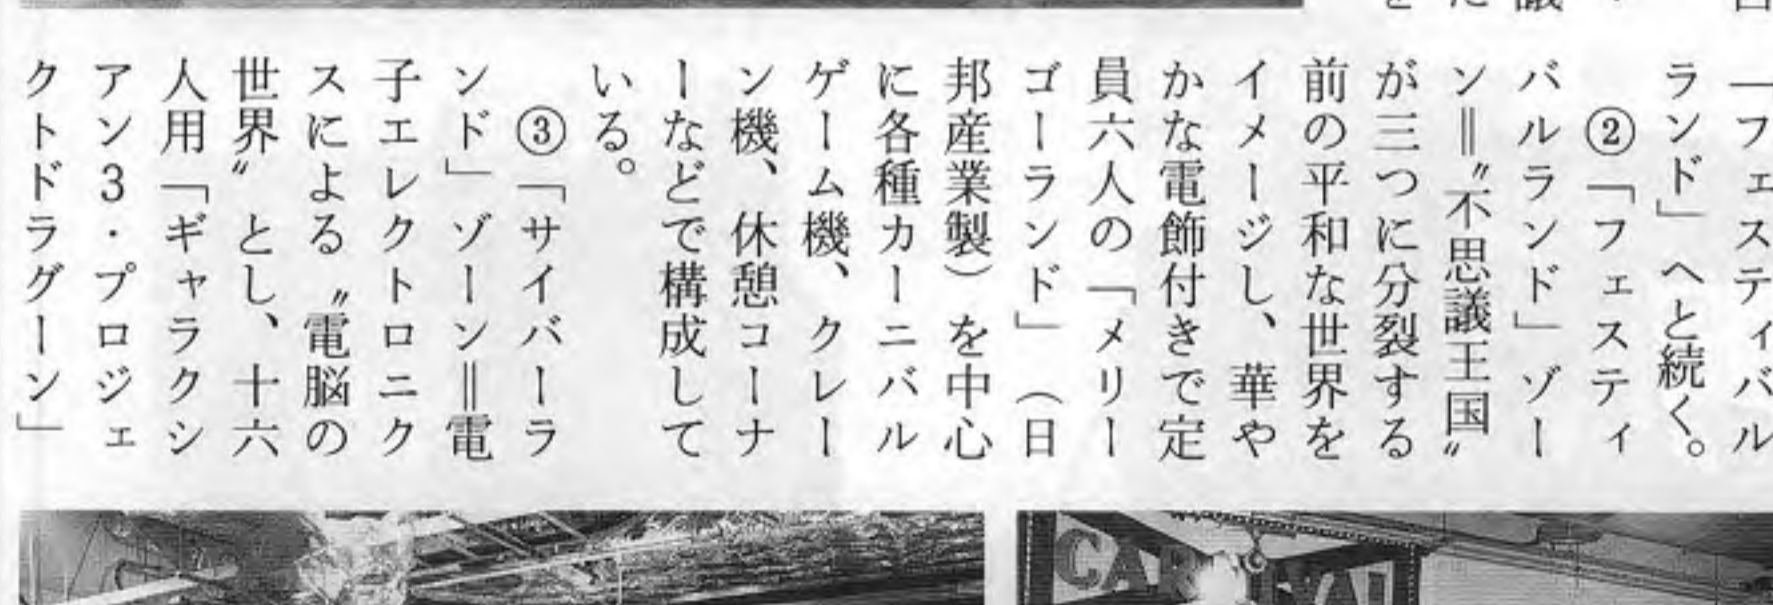 「フェスティバル
ランド」へと続く。
②「フェスティ
バルランド」ゾー
ン=〝不思議王国〟
が三つに分裂する
前の平和な世界を
イメージし、華や
かな電飾付きで定
員六人の「メリー
ゴーランド」（日
邦産業製）を中心
に各種カーニバル
ゲーム機、クレー
ン機、休憩コーナ
ーなどで構成して
いる。
③「サイバーラ
ンド」ゾーン=電
子エレクトロニク
スによる〝電脳の
世界〟とし、十六
人用「ギャラクシ
アン3・プロジェ
クトドラグーン」